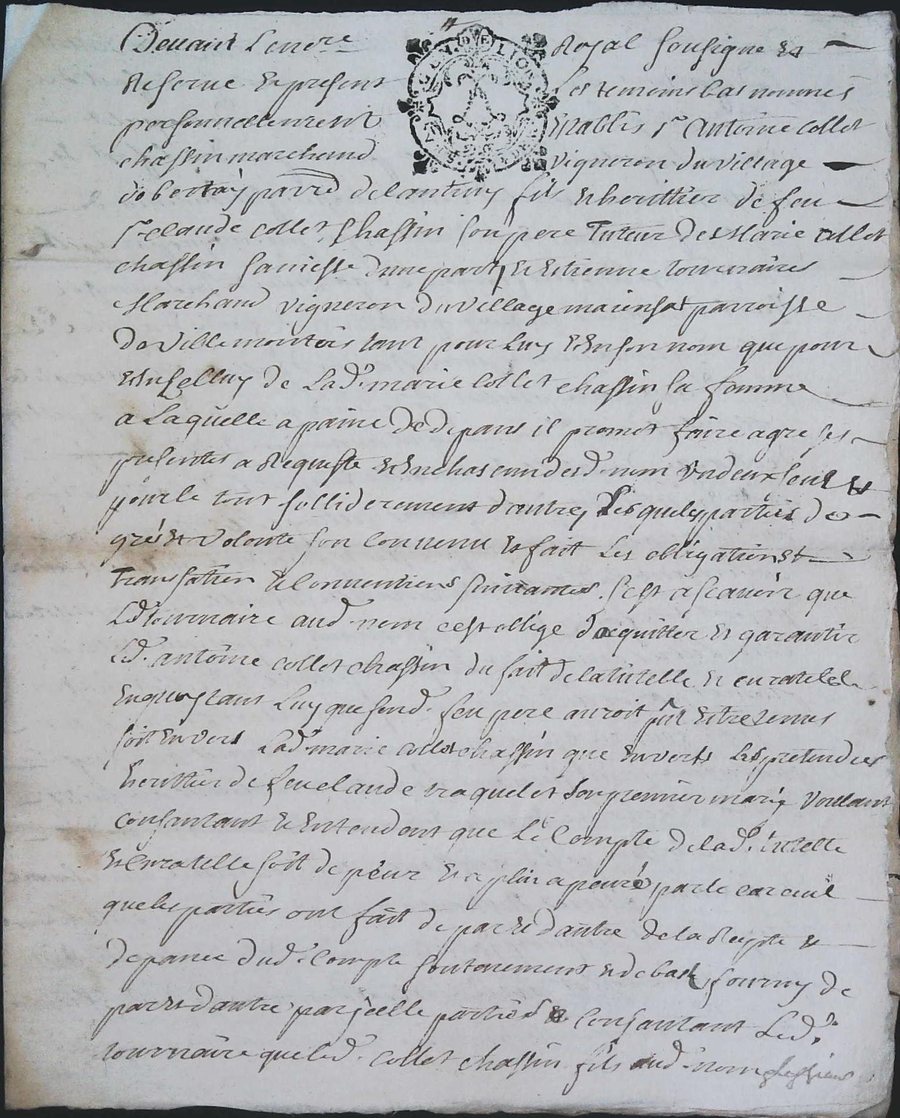 Devant Le no.re Royal soussigne et
Reserve et present Les temoins bas nommés
personnellement Etablis s.r Antoine collet
chassin marchand vigneron du village
de bertaÿ parr.d de lantiny fils et herittier de feu
s.r claude collet chassin son pere Tuteur des Marie collet
chassin d'une part, et Estienne tournaires
Marchand vigneron du village parroisse
De Villemontois tant pour Luy et En son nom que pour
et En celluy de Lad. marie collet chassin sa femme
a Laquelle a paine de depans il promet faire agreé ses
presentes a Requiste et En chascun desd. nom Un deux seul
pour le tout sollidairement d'autre, Lesqueles parties de
gré et volonté son convenu et fait Les obligations
Transation et Conventions suivantes, C'est a scavoir que
Led. tournaire aud. nom c'est oblige d'aquitter et garantir
Led. antoine collet chassin du fait de la tutelle et curatelle
En quoy tant Luy que son d. feu pere auroit pût Estre tenus
soit En vers Lad. marie collet chassin que Envers Les pretendus
herittier de feu claude raquelet son premier mary Voulant
consantant et Entendant que Le Compte de lad. tutelle
et curatelle soit de peur apuré par le careul
que les parties ont fait de part et d'autre de la Repte et
depance dud. Compte soutenement et debas fourny de
part et d'autre par jcelle parties consantant Led.
tournaire que led. collet chassin fils aud. nom